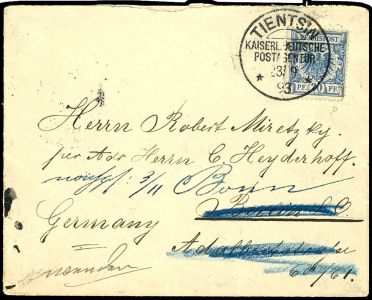 TIENTSIN
KAISERL. DEUTSCHE
POSTAGENTUR
23/9
93
REICHSPOST
20 PF
Herrn Robert Miretzky.
per Adr Herrn C. Heyderhoff.
3/11 Bonn
Berlin S.O.
Germany
Adalbertstrasse
60/61.
wenden